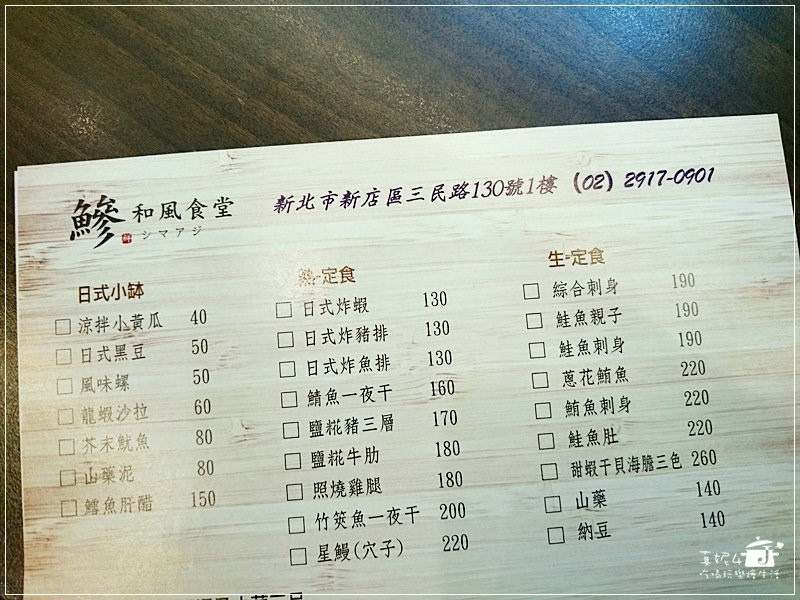 鰺 和風食堂
シマアジ
新北市新店區三民路130號1樓 (02) 2917-0901
日式小缽
涼拌小黃瓜 40
日式黑豆 50
風味螺 50
龍蝦沙拉 60
芥末魷魚 80
山藥泥 80
鱈魚肝醋 150
熱-定食
日式炸蝦 130
日式炸豬排 130
日式炸魚排 130
鯖魚一夜干 160
鹽糀豬三層 170
鹽糀牛肋 180
照燒雞腿 180
竹筴魚一夜干 200
星鰻(穴子) 220
生-定食
綜合刺身 190
鮭魚親子 190
鮭魚刺身 190
蔥花鮪魚 220
鮪魚刺身 220
鮭魚肚 220
甜蝦干貝海膽三色 260
山藥 140
納豆 140